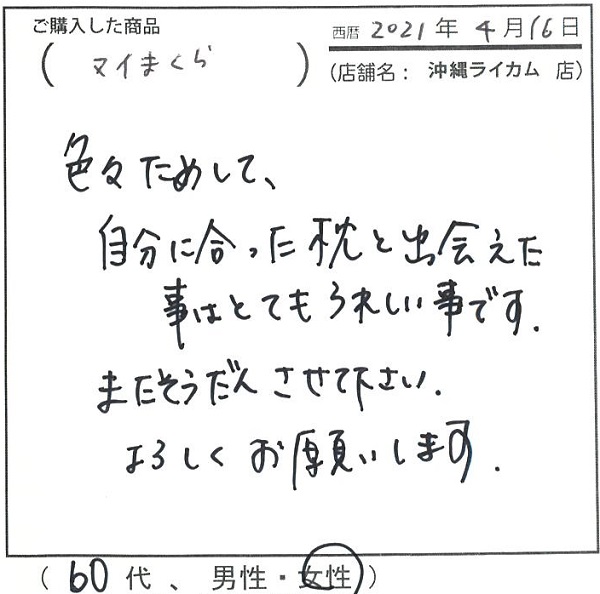 ご購入した商品
西暦 2021年 4月16日
(マイまくら)
(店舗名: 沖縄ライカム 店)
色々ためして、
自分に合った枕と出会えた
事はとてもうれしい事です.
またそうだんさせて下さい.
よろしくお願いします.
(60代、男性・女性)